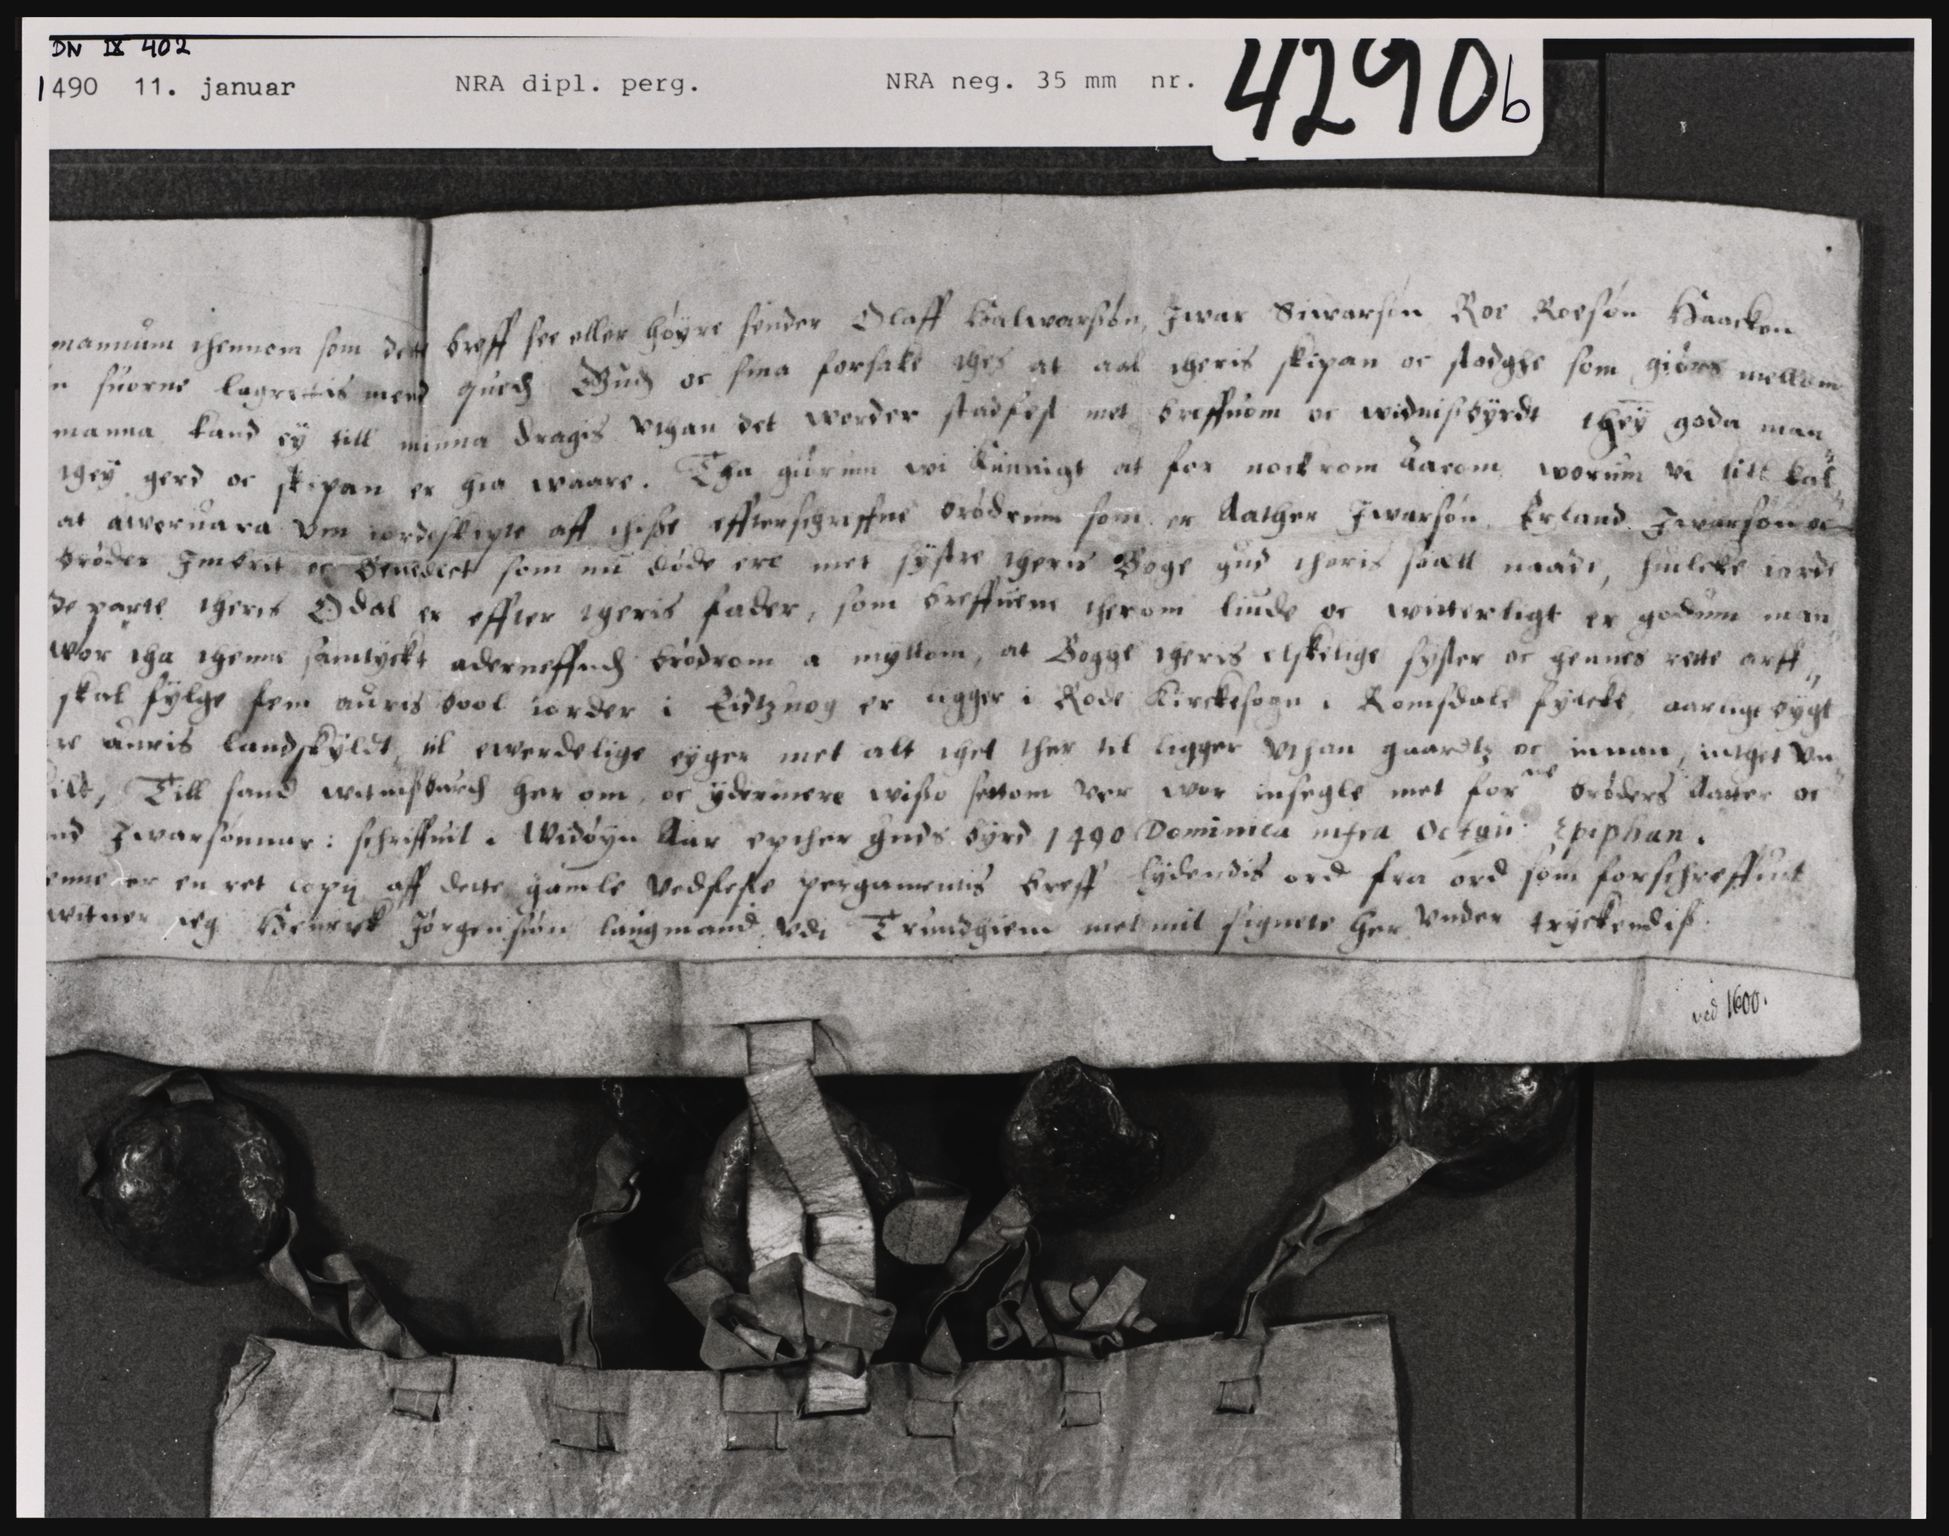 DN IX 402
1490 11. januar NRA dipl. perg. NRA neg. 35 mm nr. 4290b
mannum thennom som dett breff see eller høyre sender Olaff Halwarsøn, Jwar Siwarsøn Roe Roesøn Haacken
n suorne lagrettis mend quedh Gudh oc sina forsake thes at aal theris skipan oc stadghe som giøres mellom
manna kand ey till minna dragis vthan det worder stadfest met breffuom oc widnisbyrdt they goda man„
they gerd oc skipan er hia waare. Tha giørum wi kunnigt at for nockrom Aarom worum vi till kal„
at aweruara vm iordeskipte aff thisse effterschreffne brødrum som er Aather Jwarsøn, Erland Jwarsøn oc
brøder Jmbrit oc Benedict som nu døde ere met systre theris Boge gud theris siæll naade, huilcke iorde
de parte theris Odal er effter theris fader, som breffuene therom liude oc witterligt er godum man„
wor tha thenne samtyckt aderneffndh brødrom a myllom, at Bogge theris elskelige syster oc hennes rette arff„
skal fylge fem auris bool iorder i Eidtznog er ligger i Rode Kirckesogn i Romsdals fylcke, aarlige bygt
re auris landskyldt, til ewerdelige eyger met alt thet ther til ligger vthan gaardtz oc innan, intget vn„
ilt, Till sand witnisburdh her om, oc ydermere wisso settom ver wor insegle met forne brøders Aatter oc
nd Jwarsønnar: schriffuit i Widøyn Aar epther guds byrd 1490 Dominica infra Octau: Epiphan.
enne er en ret copy aff dette gamle vedfeste pergamentis breff lydendis ord fra ord som forschreffuit
witner ieg Henrick Jørgensøn laugmand vdi Trundhiem met mit signete her vnder tryckendis.
ved 1600.